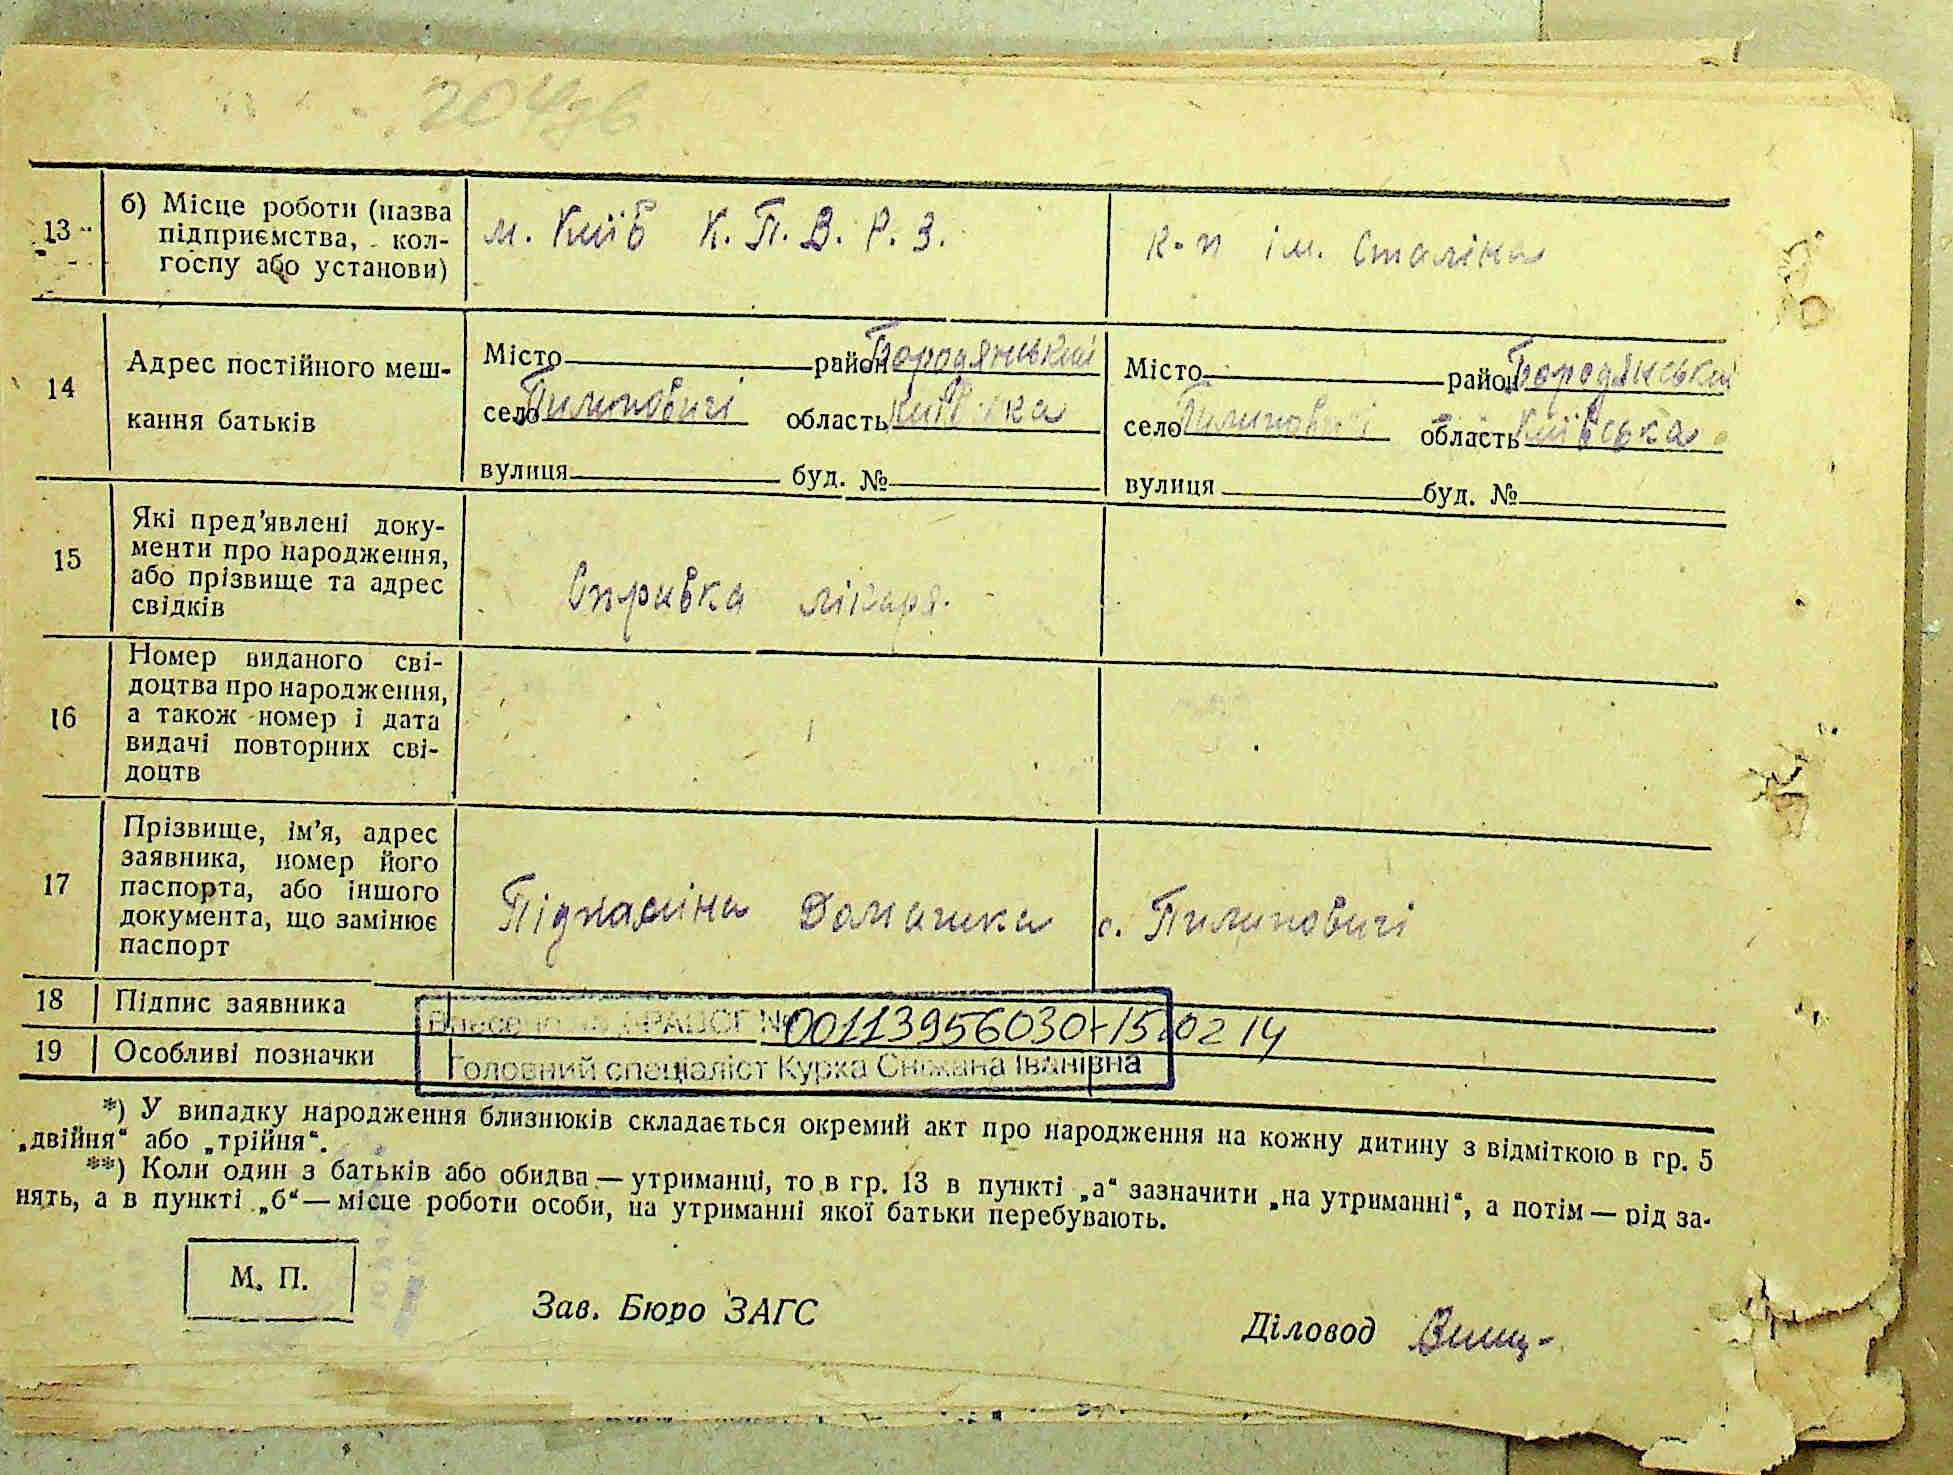 204зв
13 б) Місце роботи (назва підприємства, кол-госпу або установи) м. Київ К. П. В. Р. З. к-п ім. Сталіна
14 Адрес постійного меш-кання батьків
Місто район Бородянський Місто район Бородянський
село Пилиповичі область Київська село Пилиповичі область Київська
вулиця буд. № вулиця буд. №
15 Які пред'явлені доку-
менти про народження,
або прізвище та адрес
свідків
Справка лікаря.
16 Номер виданого сві-
доцтва про народження,
а також номер і дата
видачі повторних сві-
доцтв
17 Прізвище, ім'я, адрес
заявника, номер його
паспорта, або іншого
документа, що замінює
паспорт
Домашка с. Пилиповичі
18 Підпис заявника
Внесено до ДРАЦСГ № 00113956030 15.02 14
19 Особливі позначки
Головний спеціаліст Курха Сніжана Іванівна
*) У випадку народження близнюків складається окремий акт про народження на кожну дитину з відміткою в гр. 5
„двійня“ або „трійня“.
**) Коли один з батьків або обидва — утриманці, то в гр. 13 в пункті „а“ зазначити „на утриманні“, а потім — рід за-
нять, а в пункті „б“ — місце роботи особи, на утриманні якої батьки перебувають.
М. П.
Зав. Бюро ЗАГС
Діловод